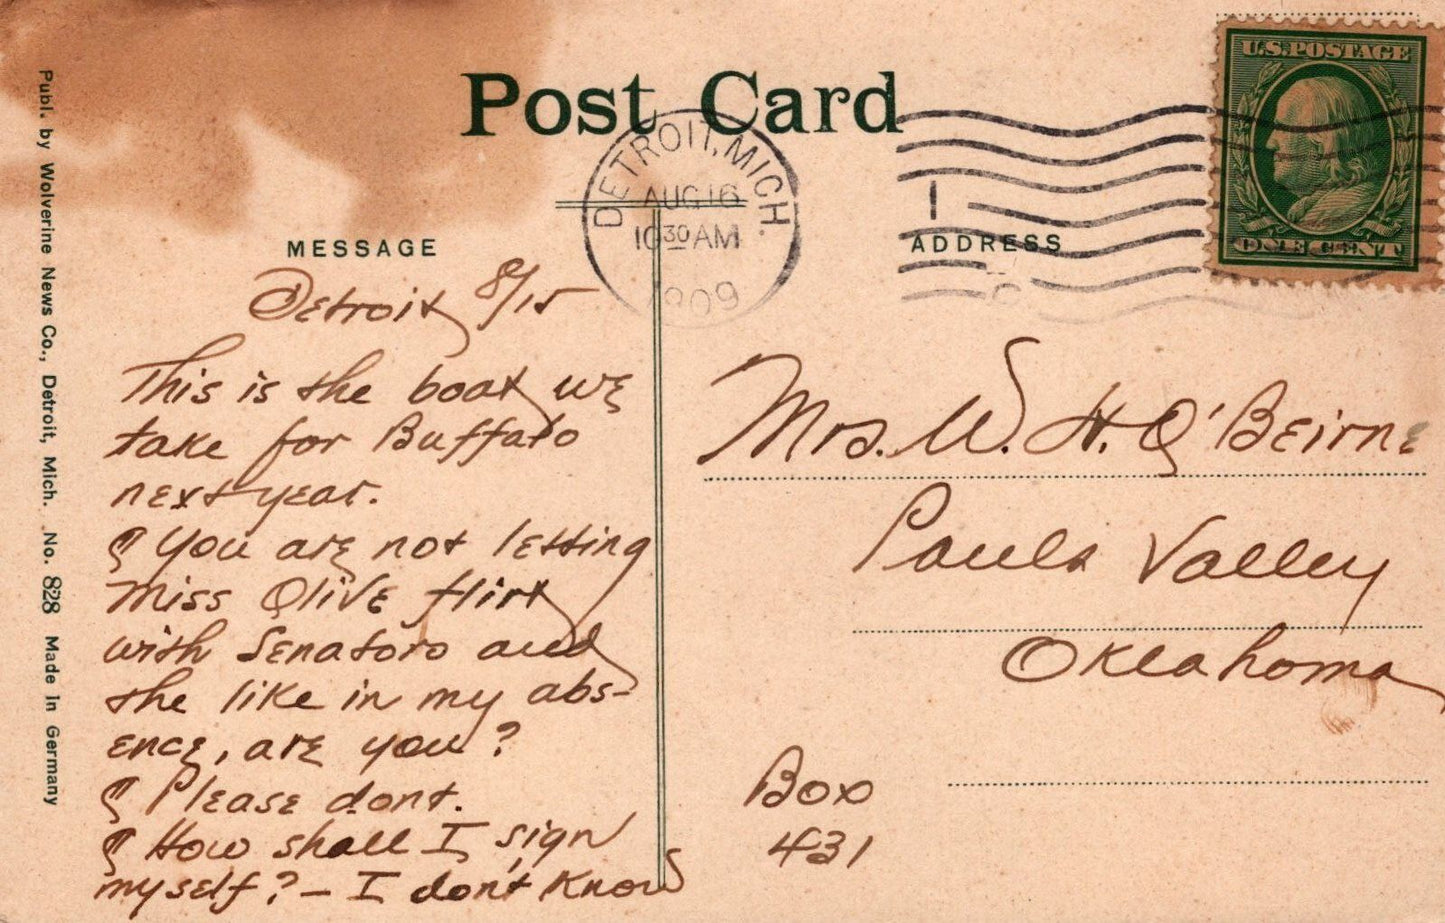 Post Card
U.S. POSTAGE
ONE CENT
DETROIT, MICH.
AUG 16
10 30 AM
1909
1
MESSAGE
ADDRESS
Publ. by Wolverine News Co., Detroit, Mich. No. 828 Made in Germany
Detroit 8/15
This is the boat we
take for Buffalo
next year.
¶ You are not letting
Miss Olive flirt
with Senators and
the like in my abs-
ence, are you?
¶ Please dont.
¶ How shall I sign
myself? – I don't know
Mrs. W. H. O'Beirne
Pauls Valley
Oklahoma
Box
431